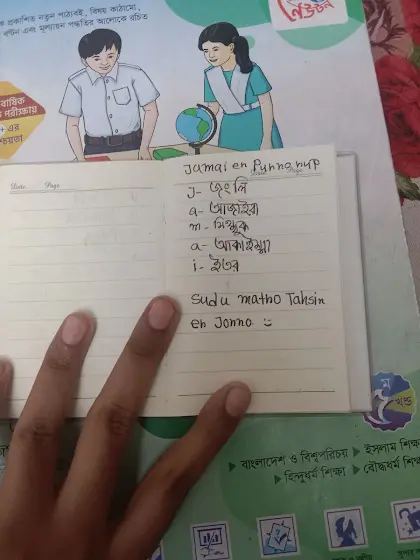 প্রকাশিত নতুন পাঠ্যবই, বিষয় কাঠামো,
বণ্টন এবং মূল্যায়ন পদ্ধতির আলোকে রচিত
নিউটন
বার্ষিক
পরীক্ষায়
+ এর
Date Page
Jamai en Punno nup
Date Page
J- জংলি
a- আজাইরা
m- মিথ্যুক
a- আকাইম্মা
i- ইতর
Sudu matho Tahsin
en Jonno
ম
খণ্ড
বাংলাদেশ ও বিশ্বপরিচয় ইসলাম শিক্ষ
হিন্দুধর্ম শিক্ষা বৌদ্ধধর্ম শিক্ষ